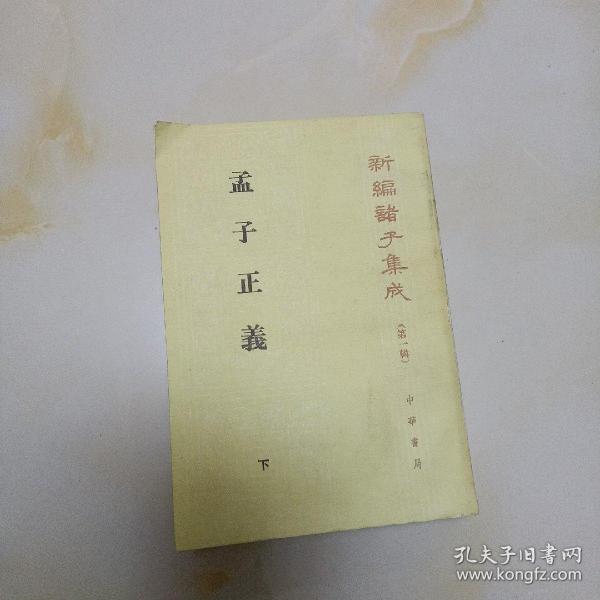 新編諸子集成
（第一輯）
中華書局
孟子正義
下
孔夫子旧書网
www.kongfz.com